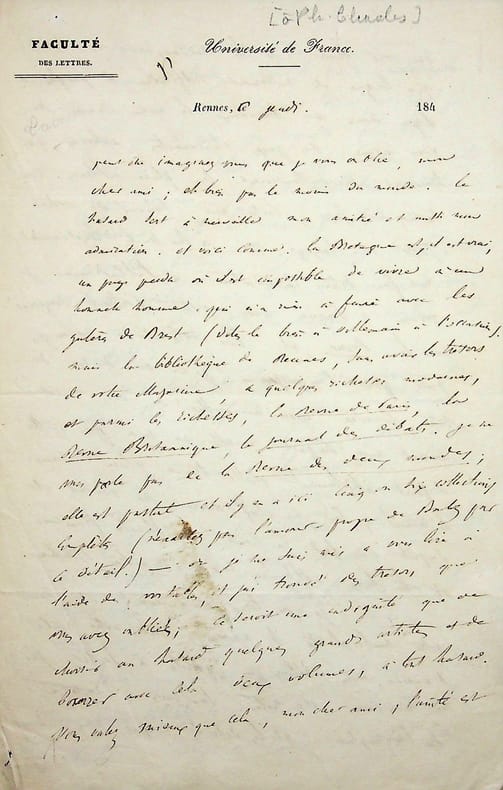 [à Ph. Chasles]
FACULTÉ
DES LETTRES.
Université de France.
Rennes, ce jeudi. 184
peut être imaginez vous que je vous oublie, mon
cher ami; eh bien pas le moins du monde. le
hasard sert à merveille mon amitié et mon
admiration. et voici comme. la Bretagne est, il est vrai,
un pays perdu où il est impossible de vivre à un
honnête homme qui n'a rien à faire avec les
galères de Brest (dites le bien à Villemain à l'occasion)
mais la bibliothèque de Rennes, sans avoir les trésors
de votre Mazarine, a quelques richesses modernes,
et parmi les richesses, la Revue de Paris, la
Revue Britannique, le journal des débats. je ne
vous parle pas de la Revue des deux mondes;
elle est partout et il y en a ici cinq ou six collections
complètes (l'amour-propre de Buloz par
ce détail!) — or je me suis mis à vous lire à
l'aide de tables, et j'ai trouvé des trésors que
vous avez oubliés; ce serait une indignité que de
choisir au hasard quelques grands articles et de
donner avec cela deux volumes, à tout hasard.
Vous valez mieux que cela, mon cher ami, l'unité est